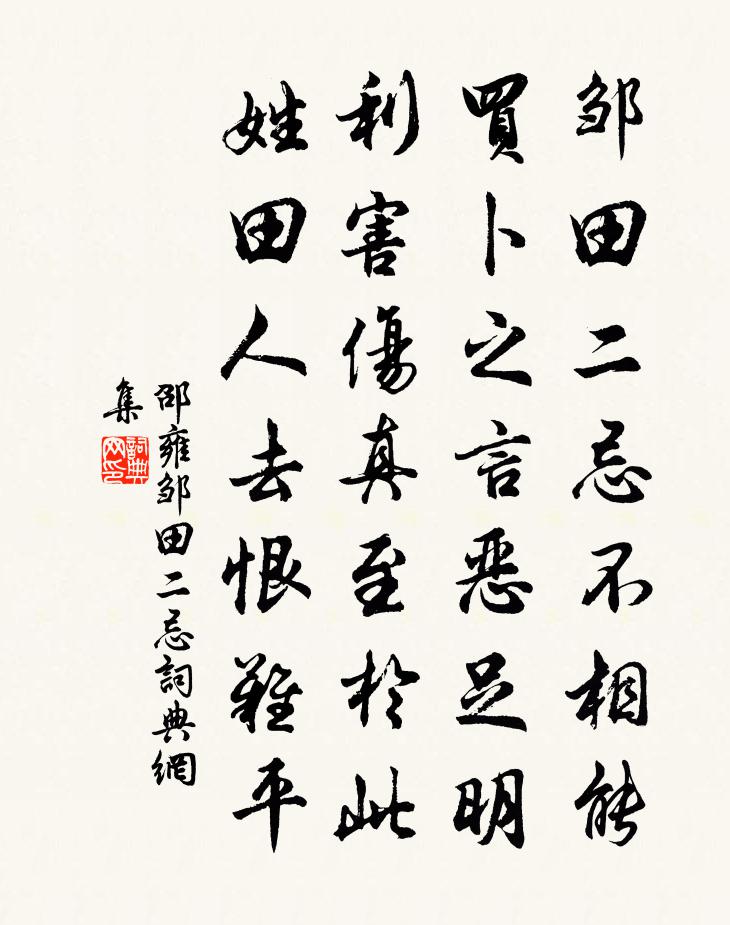 邹田二忌不相能
買卜之言惡足明
利害傷真至於此
姓田人去恨難平
邵雍邹田二忌詞典網
集
詞典网印